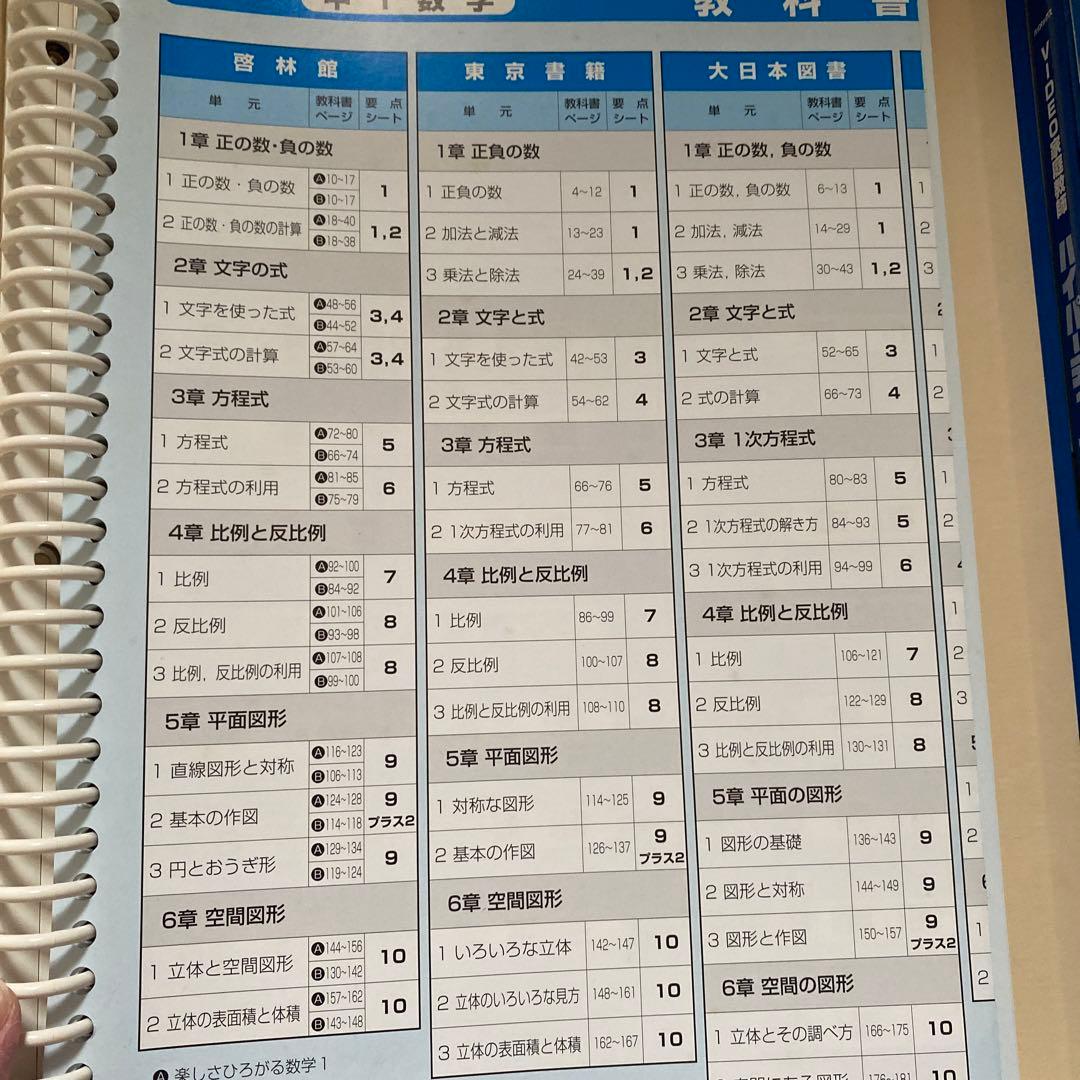 中1数学
教科書
啓林館
単元 教科書ページ 要点シート
1章 正の数・負の数
1 正の数・負の数 A10~17 B10~17 1
2 正の数・負の数の計算 A18~40 B18~38 1,2
2章 文字の式
1 文字を使った式 A48~56 B44~52 3,4
2 文字式の計算 A57~64 B53~60 3,4
3章 方程式
1 方程式 A72~80 B66~74 5
2 方程式の利用 A81~85 B75~79 6
4章 比例と反比例
1 比例 A92~100 B84~92 7
2 反比例 A101~106 B93~98 8
3 比例,反比例の利用 A107~108 B99~100 8
5章 平面図形
1 直線図形と対称 A116~123 B106~113 9
2 基本の作図 A124~128 B114~118 9 プラス2
3 円とおうぎ形 A129~134 B119~124 9
6章 空間図形
1 立体と空間図形 A144~156 B130~142 10
2 立体の表面積と体積 A157~162 B143~148 10
A 楽しさひろがる数学1
東京書籍
単元 教科書ページ 要点シート
1章 正負の数
1 正負の数 4~12 1
2 加法と減法 13~23 1
3 乗法と除法 24~39 1,2
2章 文字と式
1 文字を使った式 42~53 3
2 文字式の計算 54~62 4
3章 方程式
1 方程式 66~76 5
2 1次方程式の利用 77~81 6
4章 比例と反比例
1 比例 86~99 7
2 反比例 100~107 8
3 比例と反比例の利用 108~110 8
5章 平面図形
1 対称な図形 114~125 9
2 基本の作図 126~137 9 プラス2
6章 空間図形
1 いろいろな立体 142~147 10
2 立体のいろいろな見方 148~161 10
3 立体の表面積と体積 162~167 10
大日本図書
単元 教科書ページ 要点シート
1章 正の数,負の数
1 正の数,負の数 6~13 1
2 加法,減法 14~29 1
3 乗法,除法 30~43 1,2
2章 文字と式
1 文字と式 52~65 3
2 式の計算 66~73 4
3章 1次方程式
1 方程式 80~83 5
2 1次方程式の解き方 84~93 5
3 1次方程式の利用 94~99 6
4章 比例と反比例
1 比例 106~121 7
2 反比例 122~129 8
3 比例と反比例の利用 130~131 8
5章 平面の図形
1 図形の基礎 136~143 9
2 図形と対称 144~149 9
3 図形と作図 150~157 9 プラス2
6章 空間の図形
1 立体とその調べ方 166~175 10
10
1
2
3
1
2
1
2
1
2
3
1
2
1
2
VIDEO家庭教師